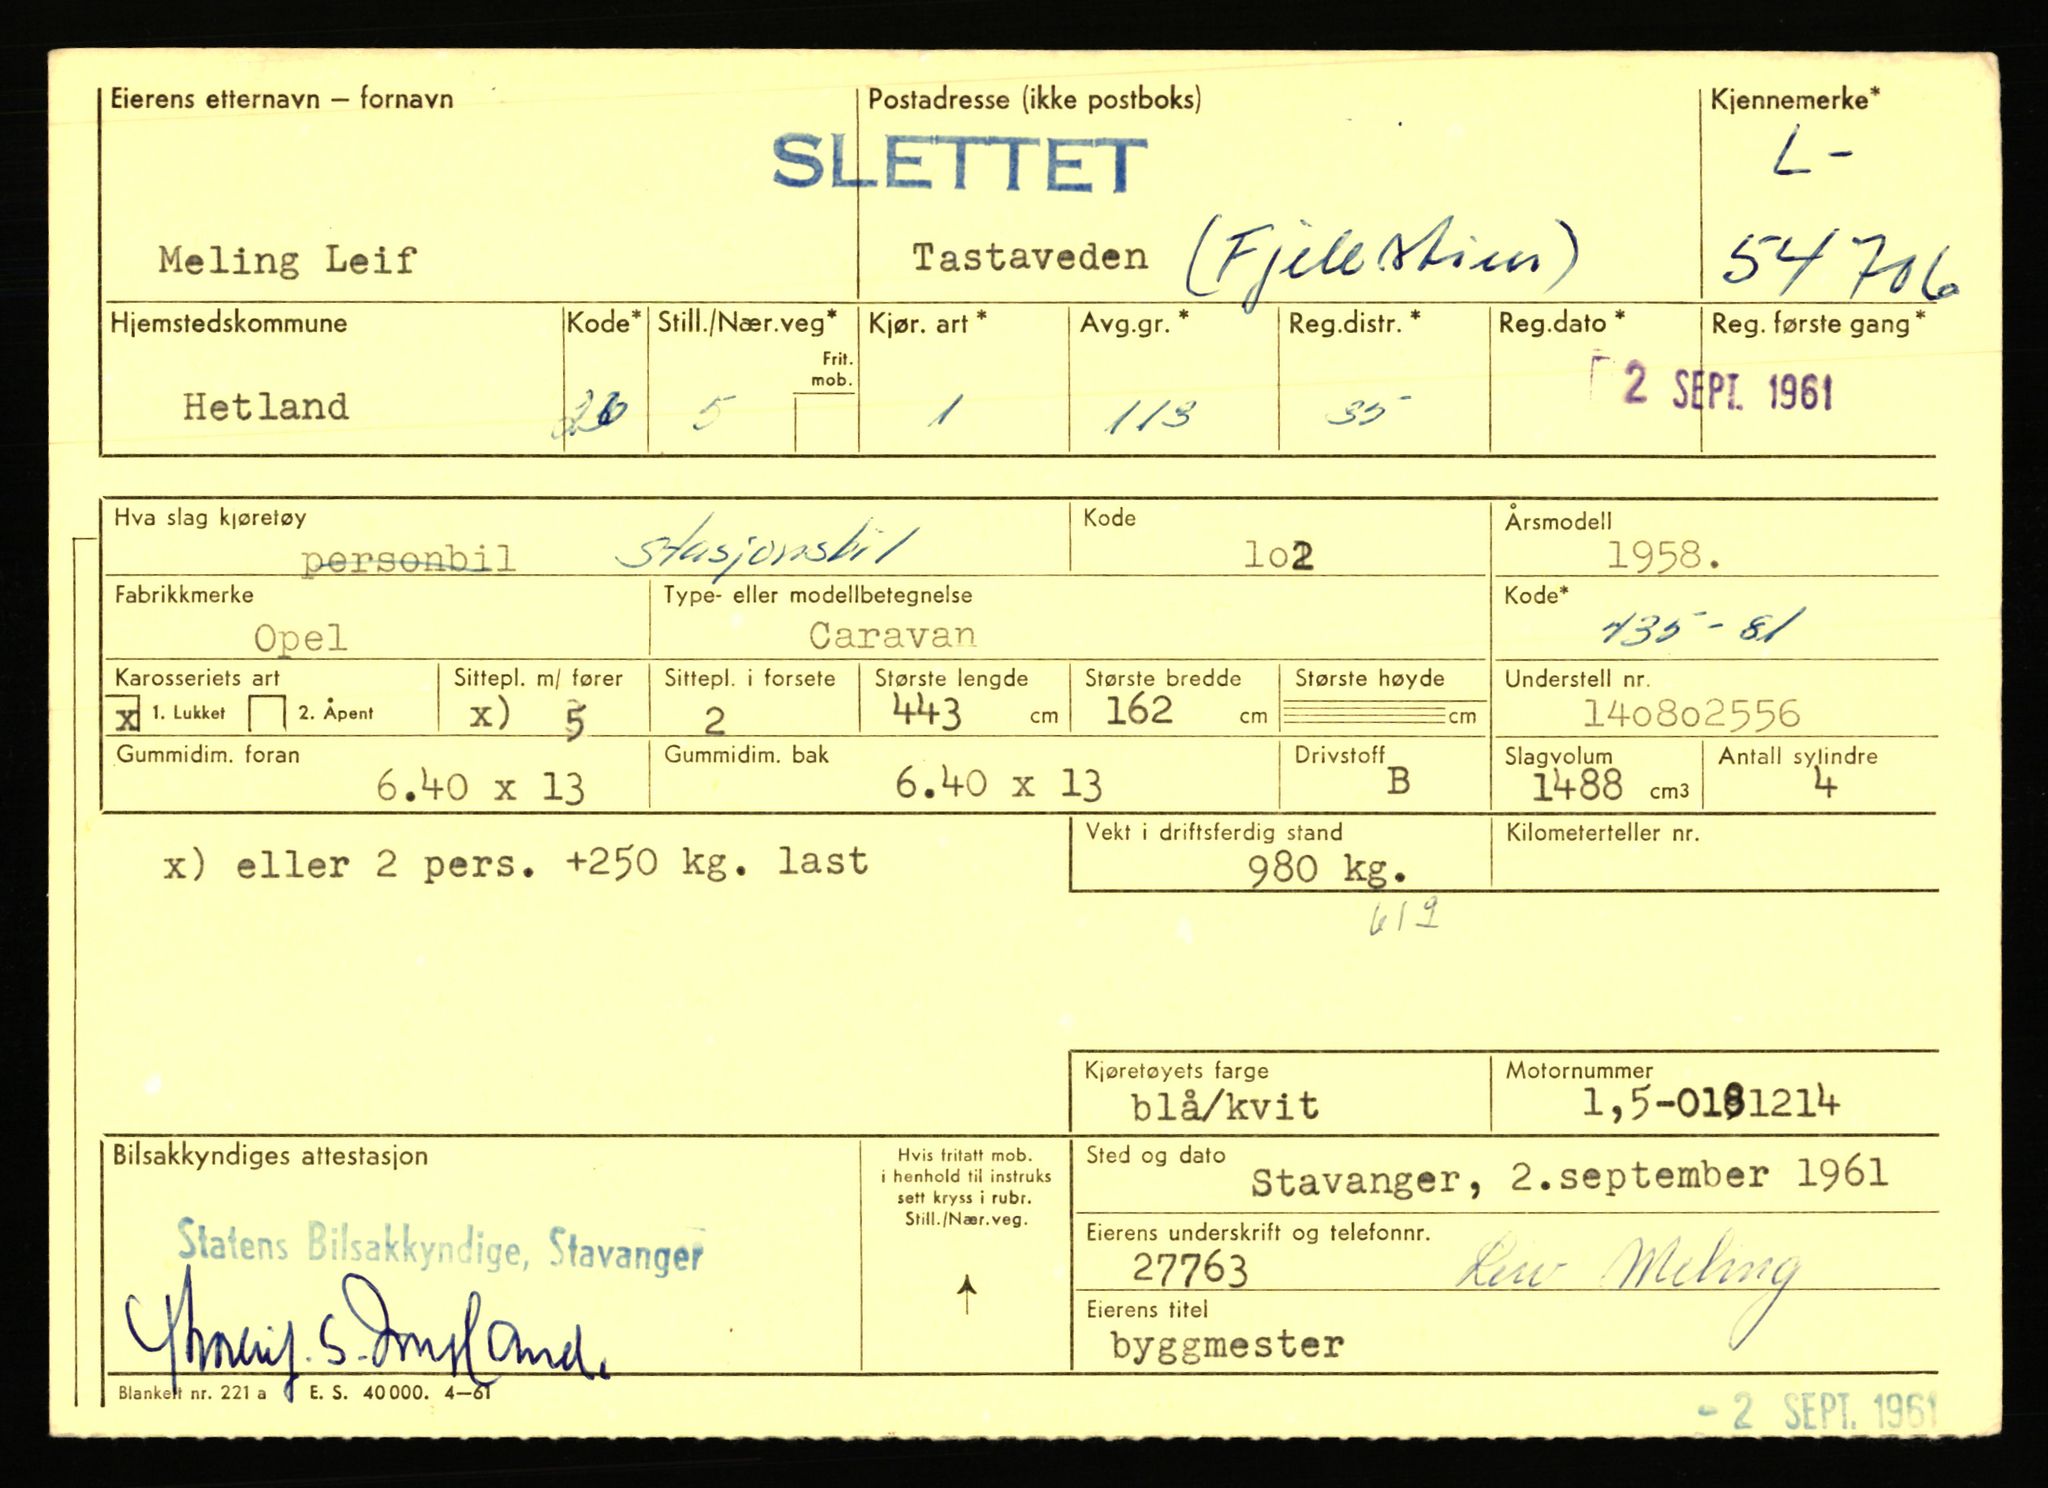 Eierens etternavn – fornavn Postadresse (ikke postboks) Kjennemerke*
SLETTET L-
Meling Leif Tastaveden 54706
Hjemstedskommune Kode* Still./Nær.veg* Kjør. art* Avg.gr.* Reg.distr.* Reg.dato* Reg. første gang*
Frit.
mob.
Hetland 5 1 113 35 2 SEPT. 1961
Hva slag kjøretøy Kode Årsmodell
personbil stasjonsbil lo2 1958.
Fabrikkmerke Type- eller modellbetegnelse Kode*
Opel Caravan 435-81
Karosseriets art Sittepl. m/ fører Sittepl. i forsete Største lengde Største bredde Største høyde Understell nr.
x 1. Lukket 2. Åpent x) 5 2 443 cm 162 cm cm 140802556
Gummidim. foran Gummidim. bak Drivstoff Slagvolum Antall sylindre
6.40 x 13 6.40 x 13 B 1488 cm3 4
Vekt i driftsferdig stand Kilometerteller nr.
x) eller 2 pers. +250 kg. last 980 kg.
619
Kjøretøyets farge Motornummer
blå/kvit 1,5-0181214
Bilsakkyndiges attestasjon Hvis fritatt mob. Sted og dato
i henhold til instruks Stavanger, 2.september 1961
sett kryss i rubr.
Still./Nær.veg.
Statens Bilsakkyndige, Stavanger Eierens underskrift og telefonnr.
27763 Meling
Eierens titel
byggmester
Blankett nr. 221 a E. S. 40 000. 4–61
- 2 SEPT. 1961